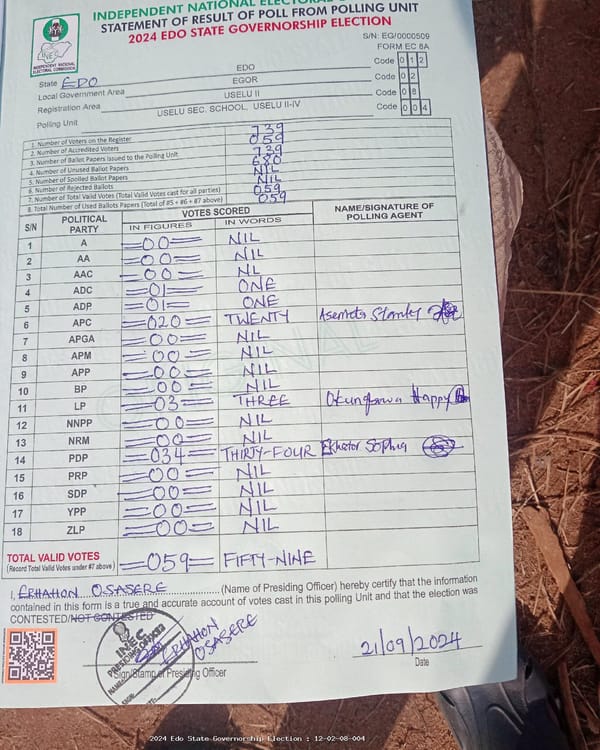 INDEPENDENT NATIONAL ELECTORAL
STATEMENT OF RESULT OF POLL FROM POLLING UNIT
2024 EDO STATE GOVERNORSHIP ELECTION
INEC
INDEPENDENT NATIONAL ELECTORAL COMMISSION
S/N: EG/0000509
FORM EC 8A
State EDO EDO Code 0 1 2
Local Government Area EGOR Code 0 2
Registration Area USELU II Code 0 8
Polling Unit USELU SEC. SCHOOL, USELU II-IV Code 0 0 4
1. Number of Voters on the Register 739
2. Number of Accredited Voters 059
3. Number of Ballot Papers issued to the Polling Unit 739
4. Number of Unused Ballot Papers 680
5. Number of Spoiled Ballot Papers NIL
6. Number of Rejected Ballots NIL
7. Number of Total Valid Votes (Total Valid Votes cast for all parties) 059
8. Total Number of Used Ballots Papers (Total of #5 + #6 + #7 above) 059
S/N POLITICAL PARTY VOTES SCORED NAME/SIGNATURE OF POLLING AGENT
IN FIGURES IN WORDS
1 A 00 NIL
2 AA 00 NIL
3 AAC 00 NL
4 ADC 01 ONE
5 ADP 01 ONE
6 APC 020 TWENTY Stanley
7 APGA 00 NIL
8 APM 00 NIL
9 APP 00 NIL
10 BP 00 NIL
11 LP 03 THREE Happy
12 NNPP 00 NIL
13 NRM 00 NIL
14 PDP 034 THIRTY-FOUR Sophia
15 PRP 00 NIL
16 SDP 00 NIL
17 YPP 00 NIL
18 ZLP 00 NIL
TOTAL VALID VOTES 059 FIFTY-NINE
(Record Total Valid Votes under #7 above)
I, ERHAHON OSASERE (Name of Presiding Officer) hereby certify that the information
contained in this form is a true and accurate account of votes cast in this polling Unit and that the election was
CONTESTED/NOT CONTESTED
INEC
PRESIDING OFFICER
ERHAHON
OSASERE
21/09/2024
Sign/Stamp of Presiding Officer Date
2024 Edo State Governorship Election : 12-02-08-004